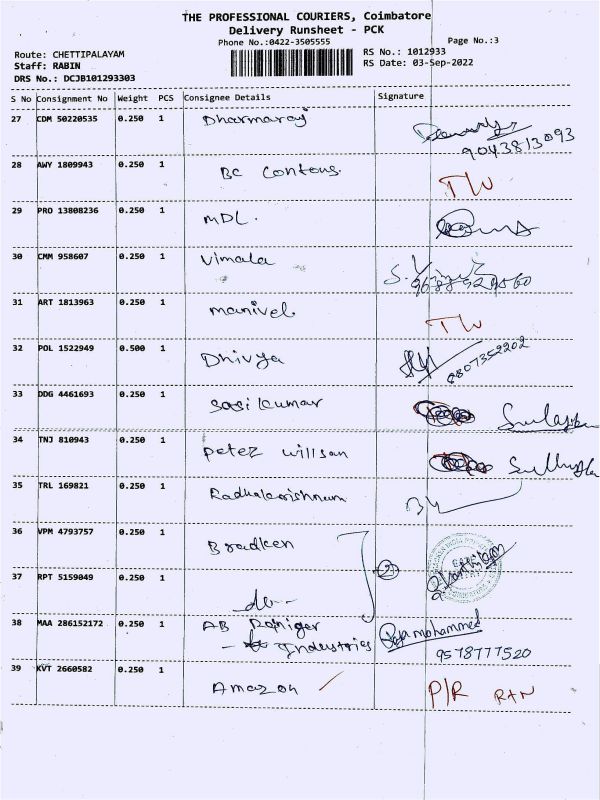 THE PROFESSIONAL COURIERS, Coimbatore
Delivery Runsheet - PCK
Phone No.:0422-3505555
Page No.:3
Route: CHETTIPALAYAM
RS No.: 1012933
Staff: RABIN
RS Date: 03-Sep-2022
DRS No.: DCJB101293303
S No Consignment No Weight PCS Consignee Details Signature
27 CDM 50220535 0.250 1 Dharmaraj
9043813093
28 AWY 1809943 0.250 1 BC Contens.
29 PRO 13808236 0.250 1 MDL.
30 CMM 958607 0.250 1 Vimala
31 ART 1813963 0.250 1 manivel.
32 POL 1522949 0.500 1 Dhivya
8807352202
33 DDG 4461693 0.250 1 Sasikumar
34 TNJ 810943 0.250 1 peter willsan
35 TRL 169821 0.250 1 Radhakrishnum
36 VPM 4793757 0.250 1 Bradken
2
37 RPT 5159049 0.250 1 do--
38 MAA 286152172 0.250 1 AB Rainiger
Industries
Raja mohammed
9578777520
39 KVT 2660582 0.250 1 Amazon P/R RTN